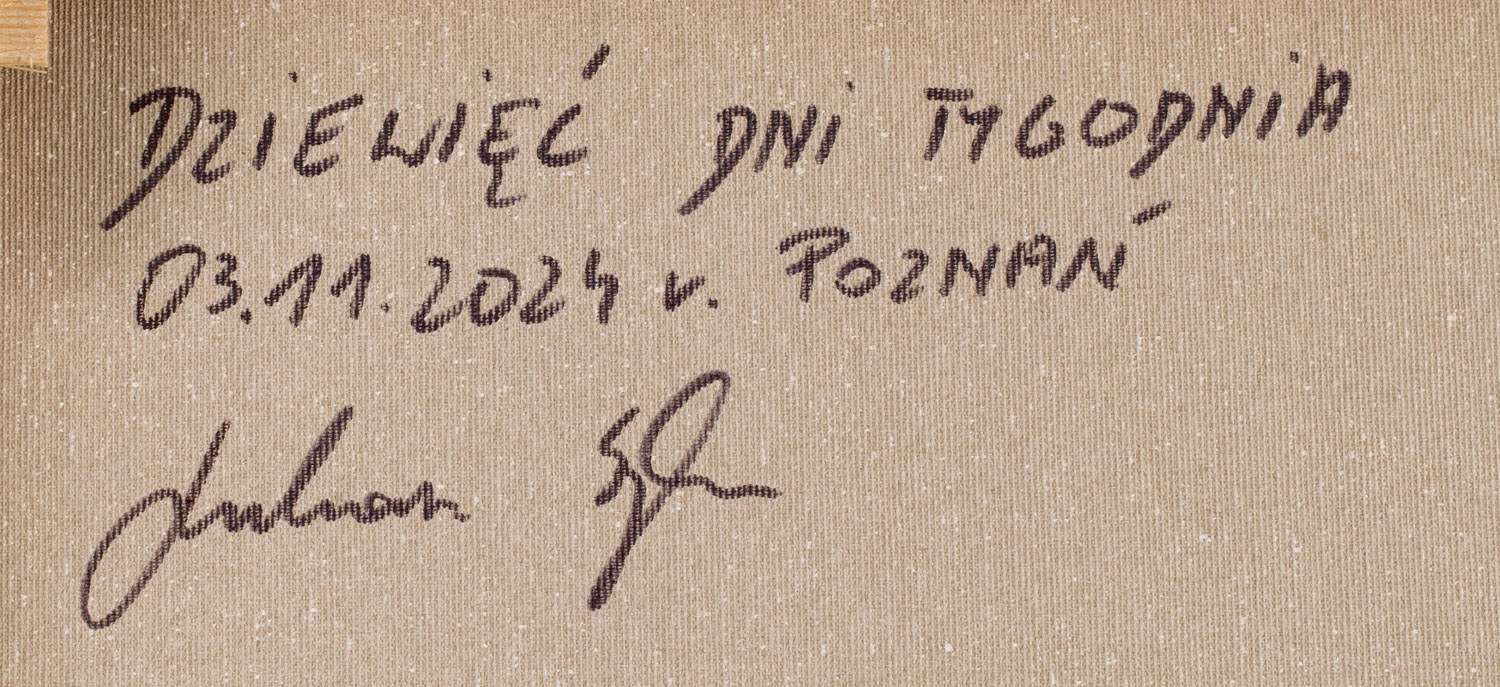 DZIEWIĘĆ DNI TYGODNIA
03.11.2024 r. POZNAŃ